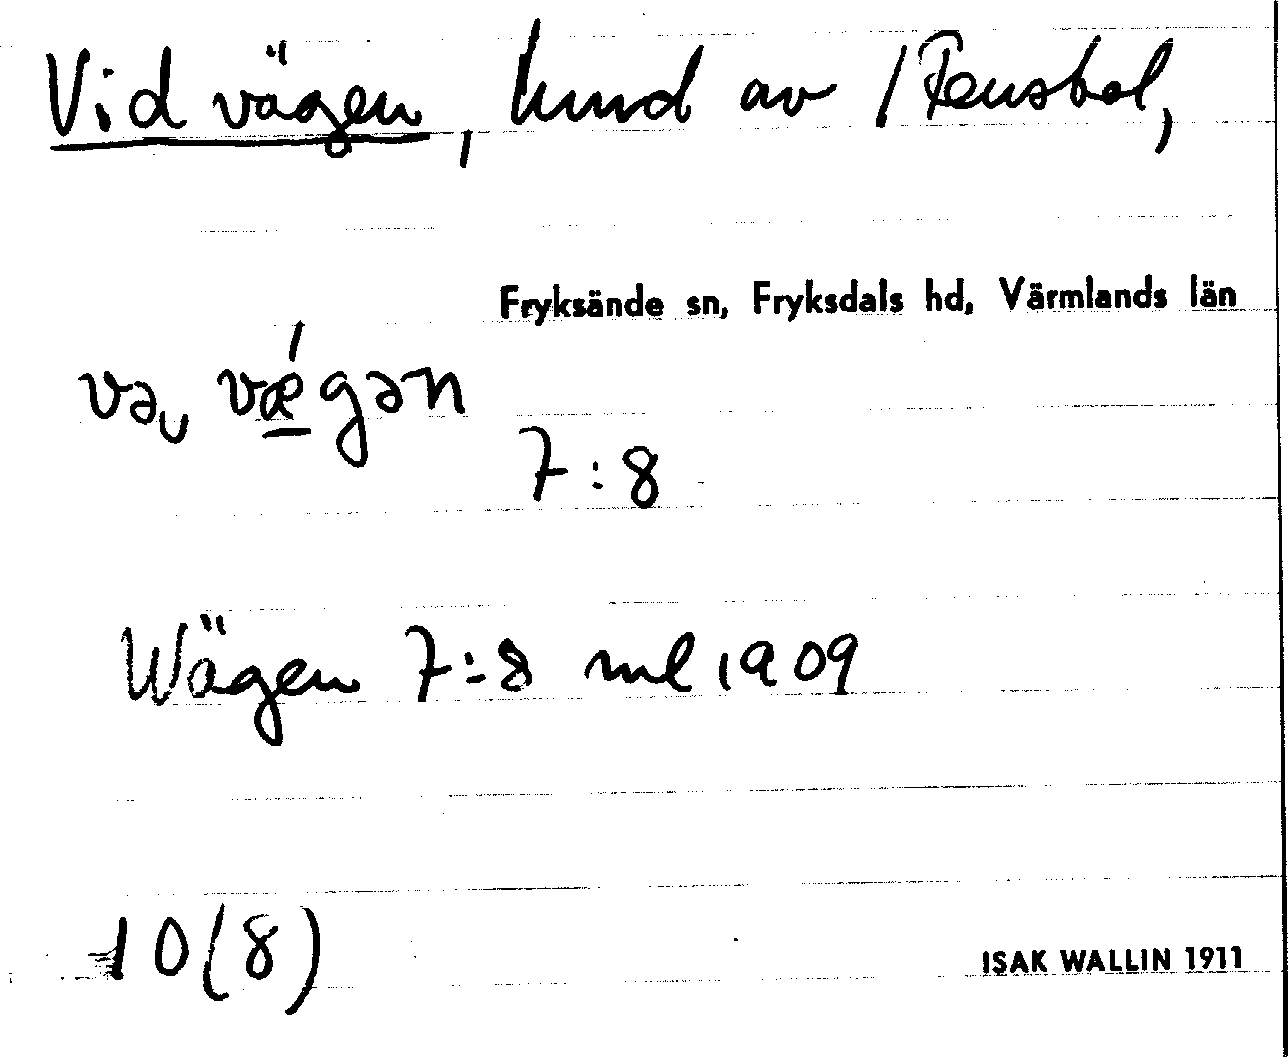 Vid vägen, hmd av 1 Fensbol,
Fryksände sn, Fryksdals hd, Värmlands län
və vǽgən
7:8
Wägen 7:8 ml 1909
10(8)
ISAK WALLIN 1911